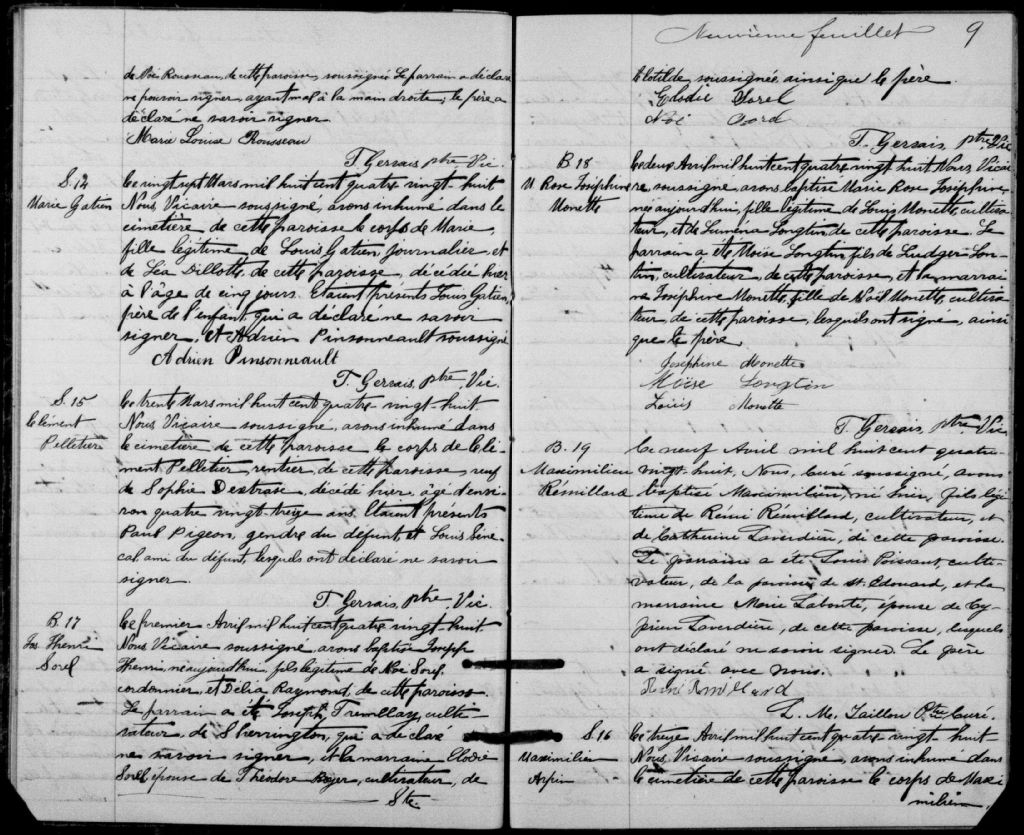 de Noé Rousseau, de cette paroisse, soussignés. Le parrain a déclaré
ne pouvoir signer, ayant mal à la main droite; le père a
déclaré ne savoir signer
Marie Louise Rousseau
T. Gervais, ptre, Vic.
S. 14
Marie Gatien
Le vingt sept Mars mil huit cent quatre vingt-huit
Nous Vicaire soussigné, avons inhumé dans le
cimetière de cette paroisse le corps de Marie,
fille légitime de Louis Gatien, journalier, et
de Léa Dillotte, de cette paroisse, décédée hier
à l'âge de cinq jours. Etaient présents Louis Gatien,
père de l'enfant qui a déclaré ne savoir
signer, et Adrien Pinsonneault soussigné
Adrien Pinsonneault
T. Gervais, ptre, Vic.
S. 15
Clément
Pelletier
Le trente Mars mil huit cent quatre vingt-huit
Nous Vicaire soussigné, avons inhumé dans
le cimetière de cette paroisse le corps de Clé-
ment Pelletier, rentier, de cette paroisse, veuf
de Sophie Dextrase, décédé hier, âgé d'envi-
ron quatre vingt-treize ans. Etaient présents
Paul Pigeon, gendre du défunt, et Louis Séné-
cal, ami du défunt, lesquels ont déclaré ne savoir
signer.
T. Gervais, ptre, Vic.
B. 17
Jos. Henri
Sorel
Le premier Avril mil huit cent quatre vingt-huit
Nous Vicaire soussigné, avons baptisé Joseph
Henri, né aujourd'hui, fils légitime de Noé Sorel,
cordonnier, et Délia Raymond, de cette paroisse.
Le parrain a été Joseph Tremblay, culti-
vateur, de Sherrington, qui a déclaré
ne savoir signer, et la marraine Elodie
Sorel, épouse de Théodore Boyer, cultivateur, de
Ste.
Neuvième feuillet 9
Clotilde, soussignée ainsi que le père.
Elodie Sorel
Noé Sorel
T. Gervais, ptre, Vic
B. 18
M Rose Joséphine
Monette
Le deux Avril mil huit cent quatre vingt huit Nous, Vicai-
re, soussigné avons baptisé Marie Rose Joséphine,
née aujourd'hui, fille légitime de Louis Monette, cultiva-
teur, et de Luména Longtin, de cette paroisse. Le
parrain a été Moïse Longtin, fils de Ludger Lon-
tin, cultivateur, de cette paroisse, et la marrai-
ne Joséphine Monette, fille de Noël Monette, cultiva-
teur, de cette paroisse, lesquels ont signé, ainsi
que le père
Joséphine Monette
Moïse Longtin
Louis Monette
T. Gervais, ptre, Vic
B. 19
Maximilien
Rémillard
Le neuf Avril mil huit cent quatre-
vingt huit, Nous, Curé soussigné, avons
baptisé Maximilien, né hier, fils légi-
time de Rémi Rémillard, cultivateur, et
de Catherine Laverdière, de cette paroisse.
Le parrain a été Louis Poissant, culti-
vateur, de la paroisse de St. Edouard, et la
marraine Marie Labonté, épouse de Cy-
prien Laverdière, de cette paroisse, lesquels
ont déclaré ne savoir signer. Le père
a signé avec nous.
Rémi Rémillard
L. M. Taillon Ptre Curé.
S. 16
Maximilien
Le treize Avril mil huit cent quatre vingt huit
Nous, Vicaire soussigné, avons inhumé dans
le cimetière de cette paroisse le corps de Maxi-
milien,